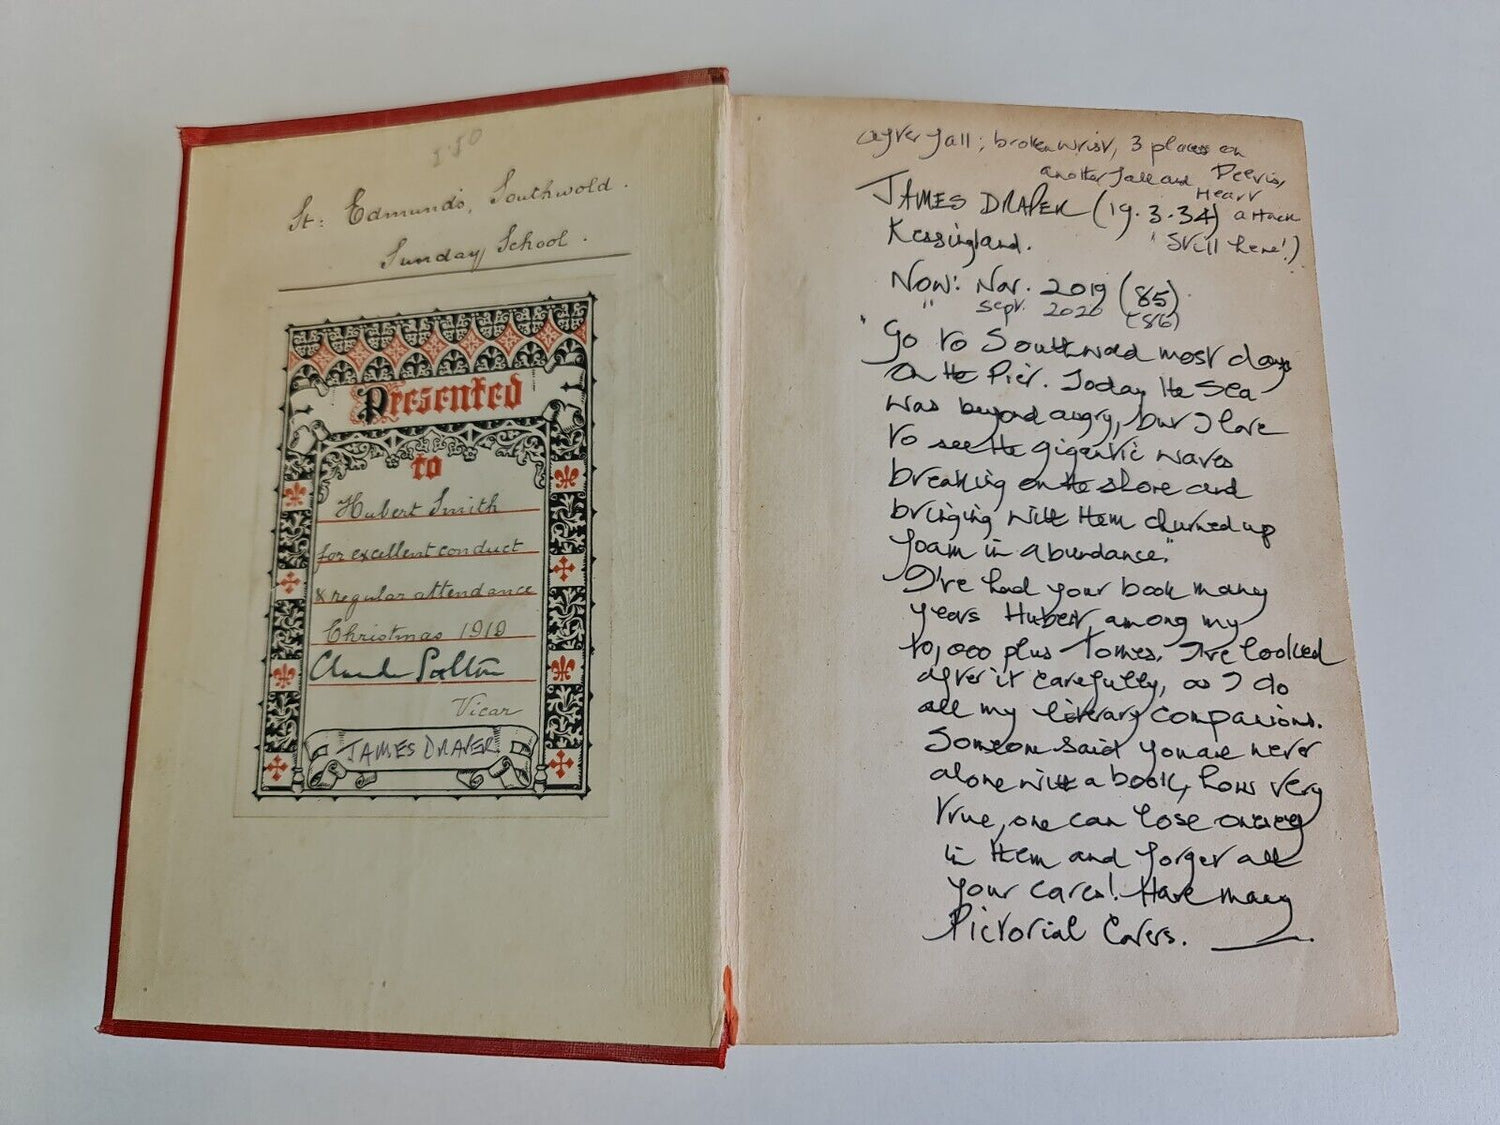 3.50
St: Edmunds, Southwold.
Sunday School.
Presented
to
Hubert Smith
for excellent conduct
& regular attendance
Christmas 1919
Vicar
JAMES DRAPER
after fall; broken wrist, 3 places on
another fall and Pelvis,
Heart
JAMES DRAPER (19.3.34) attack
Kessingland. 'Still here!')
Now: Nov. 2019 (85)
" Sept. 2020 (86)
"Go to Southwold most days
on the Pier. Today the Sea
was beyond angry, but I love
to see the gigantic waves
breaking on the shore and
bringing with them churned up
foam in abundance."
I've had your book many
years Hubert, among my
10,000 plus tomes. I've looked
after it carefully, as I do
all my literary companions.
Someone said you are never
alone with a book, how very
true, one can lose oneself
in them and forget all
your cares! Have many
Pictorial Covers.